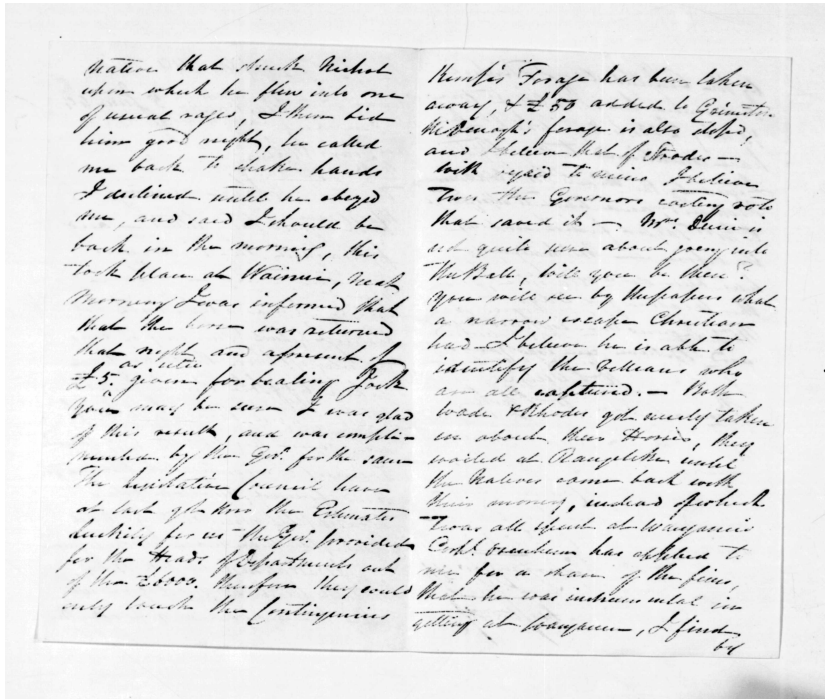 native that struck Nichol
upon which he flew into one
of usual rages, I then bid
him good night, he called
me back to shake hands
I declined until he obeyed
me, and said I should be
back in the morning, this
took place at Wainui, next
morning I was informed that
that the horse was returned
that night and a present of
£5. as utu given for beating Jack
You may be sure I was glad
of this result, and was compli-
mented by the Govr. for the same
The Legislative Council have
at last got thro the Estimates
luckily for us the Govr. provided
for the Heads of Departments out
of the £6000. therefore they could
only touch the Contingencies
Kemp's Forage has been taken
away, & £50 added to Grimstone
McDonogh's forage is also stopped,
and I believe that of Strode —
With regard to mine I believe
'twas the Governors casting vote
that saved it — Mrs.
not quite sure about going into
The Ball, will you be there?
you will see by the papers what
a narrow escape Christian
had I believe he is able to
identify the villians who
are all captured. — Both
Wade & Rhodes got nicely taken
in about their Horses, they
waited at Rangitikei until
the Natives came back with
their money, instead of which
'twas all spent at Wanganui
Capt. has applied to
me for a share of the fines,
that he was instrumental in
getting at Wanganui, I find
by